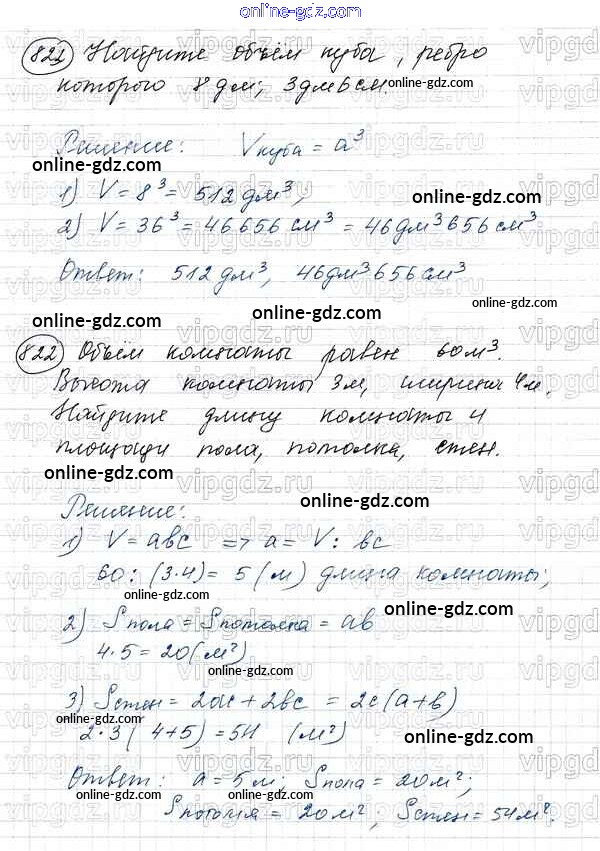 online-gdz.com
821 Найдите объём куба, ребро
которого 8 дм; 3 дм 6 см.
online-gdz.com
Решение: Vкуба = a³
online-gdz.com
1) V = 8³ = 512 дм³;
online-gdz.com
2) V = 36³ = 46656 см³ = 46 дм³ 656 см³
online-gdz.com
Ответ: 512 дм³, 46 дм³ 656 см³
online-gdz.com
822 Объём комнаты равен 60 м³.
online-gdz.com
Высота комнаты 3 м, ширина 4 м.
Найдите длину комнаты и
площади пола, потолка, стен.
online-gdz.com
Решение:
online-gdz.com
1) V = abc => a = V : bc
60 : (3·4) = 5 (м) длина комнаты;
online-gdz.com
2) Sпола = Sпотолка = ab
4·5 = 20 (м²)
online-gdz.com
3) Sстен = 2ac + 2bc = 2c(a+b)
online-gdz.com
2·3 (4+5) = 54 (м²)
online-gdz.com
Ответ: a = 5 м; Sпола = 20 м²;
online-gdz.com
Sпотолка = 20 м²; Sстен = 54 м².
online-gdz.com